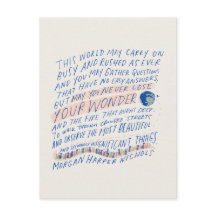 THIS WORLD MAY CARRY ON
BUSY AND RUSHED AS EVER
AND YOU MAY GATHER QUESTIONS
THAT HAVE NO EASY ANSWERS,
BUT MAY YOU NEVER LOSE
YOUR WONDER
AND THE FIRE THAT AVEN DARES
TO WALK THROUGH CROWDED STREETS
AND OBSERVE THE MOST BEAUTIFUL
AND SEEMINGLY INSIGNIFICANT THINGS
MORGAN HARPER NICHOLS